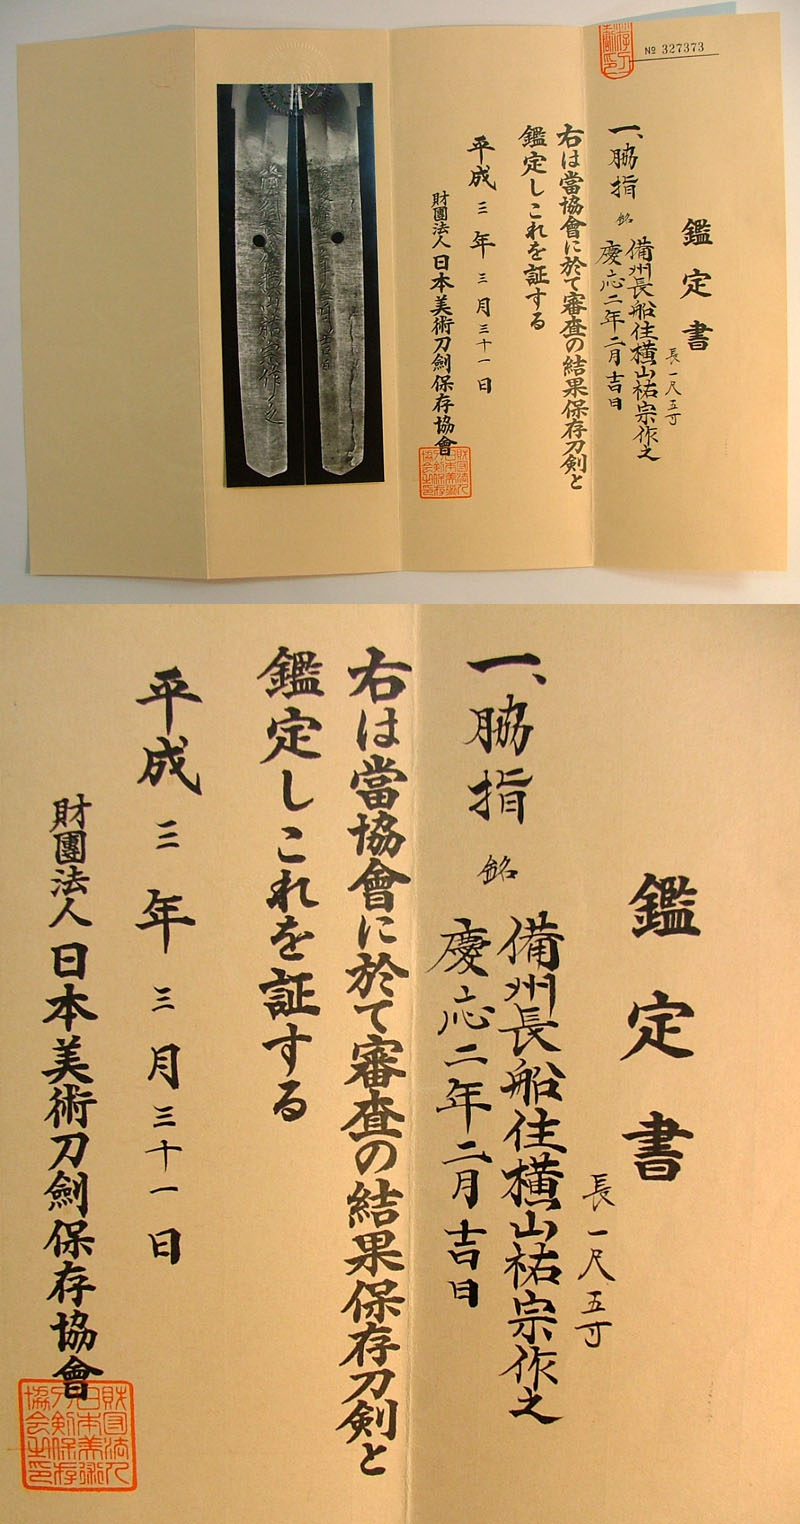 № 327373
鑑定書
一、脇指 銘 備州長船住横山祐宗作之
長一尺五寸
慶応二年二月吉日
右は當協會に於て審査の結果保存刀剣と
鑑定しこれを証する
平成三年三月三十一日
財團法人日本美術刀劍保存協會
鑑定書
長一尺五寸
一、脇指 銘 備州長船住横山祐宗作之
慶応二年二月吉日
右は當協會に於て審査の結果保存刀剣と
鑑定しこれを証する
平成三年三月三十一日
財團法人日本美術刀劍保存協會